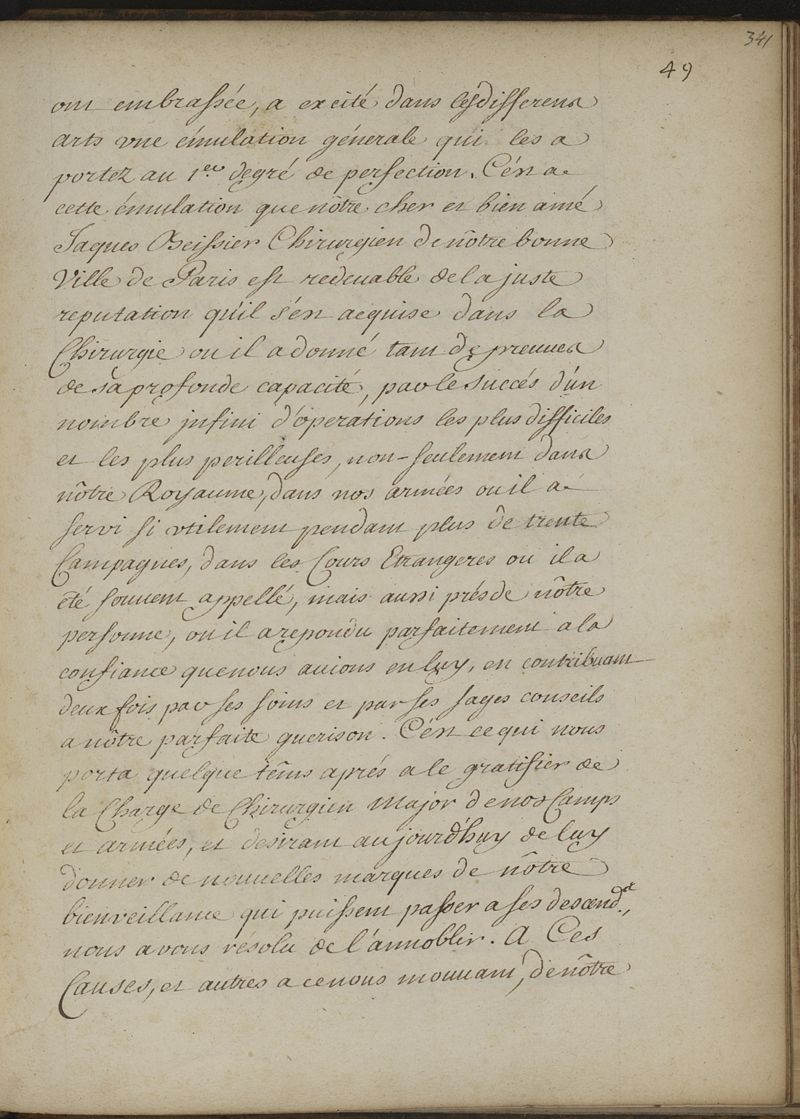 341
49
ont embrassée, a excité dans les differens
arts vne émulation génerale qui les a
portez au 1er degré de perfection. C'est a
cette émulation que nôtre cher et bien amé
Jaques Beissier Chirurgien de nôtre bonne
Ville de Paris est redeuable de la juste
reputation qu'il s'est acquise dans la
Chirurgie ou il a donné tant de preuues
de sa profonde capacité, par le succés d'un
nombre infini d'operations les plus difficiles
et les plus perilleuses, non-seulement dans
nôtre Royaume, dans nos armées ou il a
servi si vtilement pendant plus de trente
Campagnes, dans les Cours Etrangeres ou il a
été souuent appellé, mais aussi prés de nôtre
personne, ou il a repondu parfaitement a la
confiance que nous auions en luy, en contribuant
deux fois par ses soins et par ses sages conseils
a nôtre parfaite guerison. C'est ce qui nous
porta quelque têms aprés a le gratifier de
la Charge de Chirurgien Major de nos Camps
et armées, et desirant aujourd'huy de luy
donner de nouuelles marques de nôtre
bienveillance qui puissent passer a ses descend.ts,
nous avons résolu de l'annoblir. A Ces
Causes, et autres a ce nous mouuant, de nôtre